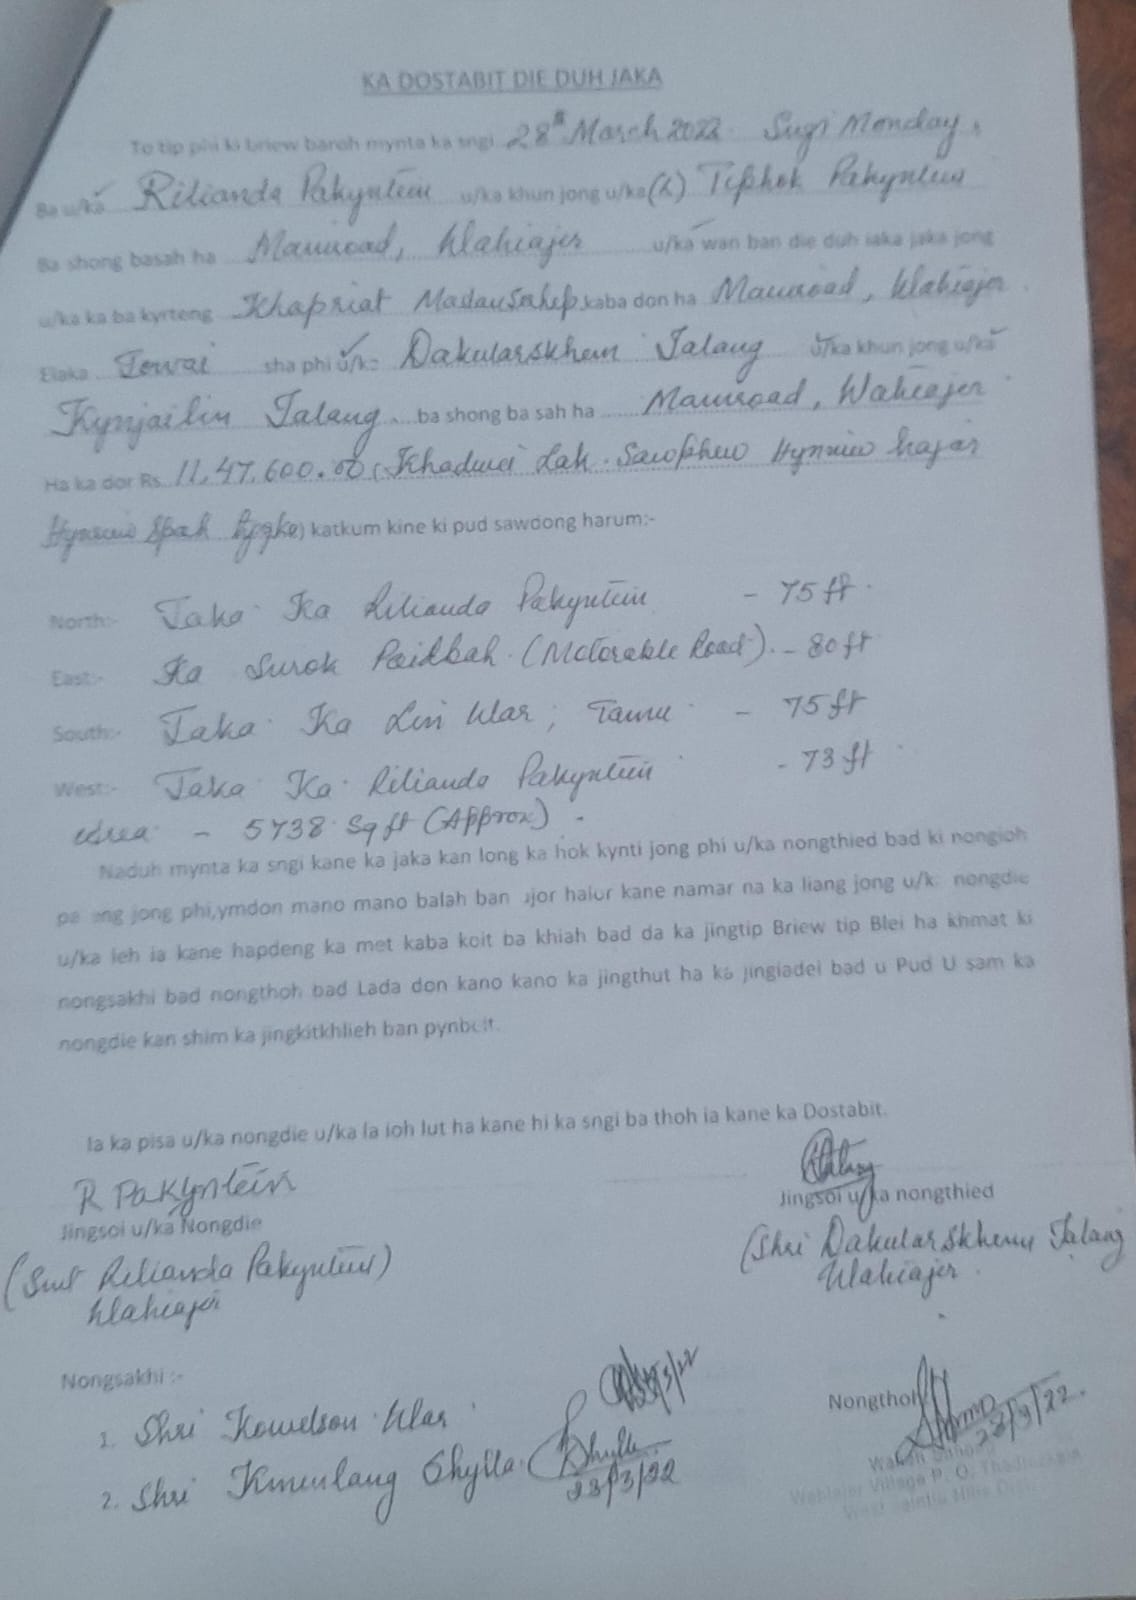 KA DOSTABIT DIE DUH JAKA
To tip phi ki briew baroh mynta ka sngi 28th March 2022. Sngi Monday,
Ba u/ka Rilianda Pakyntein u/ka khun jong u/ka (L) Tiphok Pakyntein
Ba shong basah ha Mauroad, Wahiajer u/ka wan ban die duh iaka jaka jong
u/ka ka ba kyrteng Khapriat Madansahep kaba don ha Mauroad, Wahiajer
Elaka Jowai sha phi u/ka Dakularskhem Talang u/ka khun jong u/ka
Kynjailin Talang ba shong ba sah ha Mauroad, Wahiajer
Ha ka dor Rs. 11,47,600.00 (Khadwei Lak Sawphew Hynniew hajar
Hynriew Spah Pyrke) katkum kine ki pud sawdong harum:-
North:- Jaka Ka Rilianda Pakyntein - 75 ft.
East:- Ka Surok Paidbah (Motorable Road). - 80 ft
South:- Jaka Ka Lin War, - 75 ft
West:- Jaka Ka Rilianda Pakyntein - 73 ft
Area - 5738 Sq ft (Approx)
Naduh mynta ka sngi kane ka jaka kan long ka hok kynti jong phi u/ka nongthied bad ki nongioh
jong phi,ymdon mano mano balah ban halor kane namar na ka liang jong u/ka nongdie
u/ka leh ia kane hapdeng ka met kaba koit ba khiah bad da ka jingtip Briew tip Blei ha khmat ki
nongsakhi bad nongthoh bad Lada don kano kano ka jingthut ha ka jingiadei bad u Pud U sam ka
nongdie kan shim ka jingkitkhlieh ban pynbeit.
Ia ka pisa u/ka nongdie u/ka la ioh lut ha kane hi ka sngi ba thoh ia kane ka Dostabit.
R Pakyntein
Jingsoi u/ka Nongdie
(Smt Rilianda Pakyntein)
Wahiajer
Jingsoi u/ka nongthied
(Shri Dakularskhem Talang
Wahiajer
Nongsakhi :-
1. Shri Kowelson War
2. Shri Kmenlang Shylla
28/3/22
Nongthoh
28/3/22.